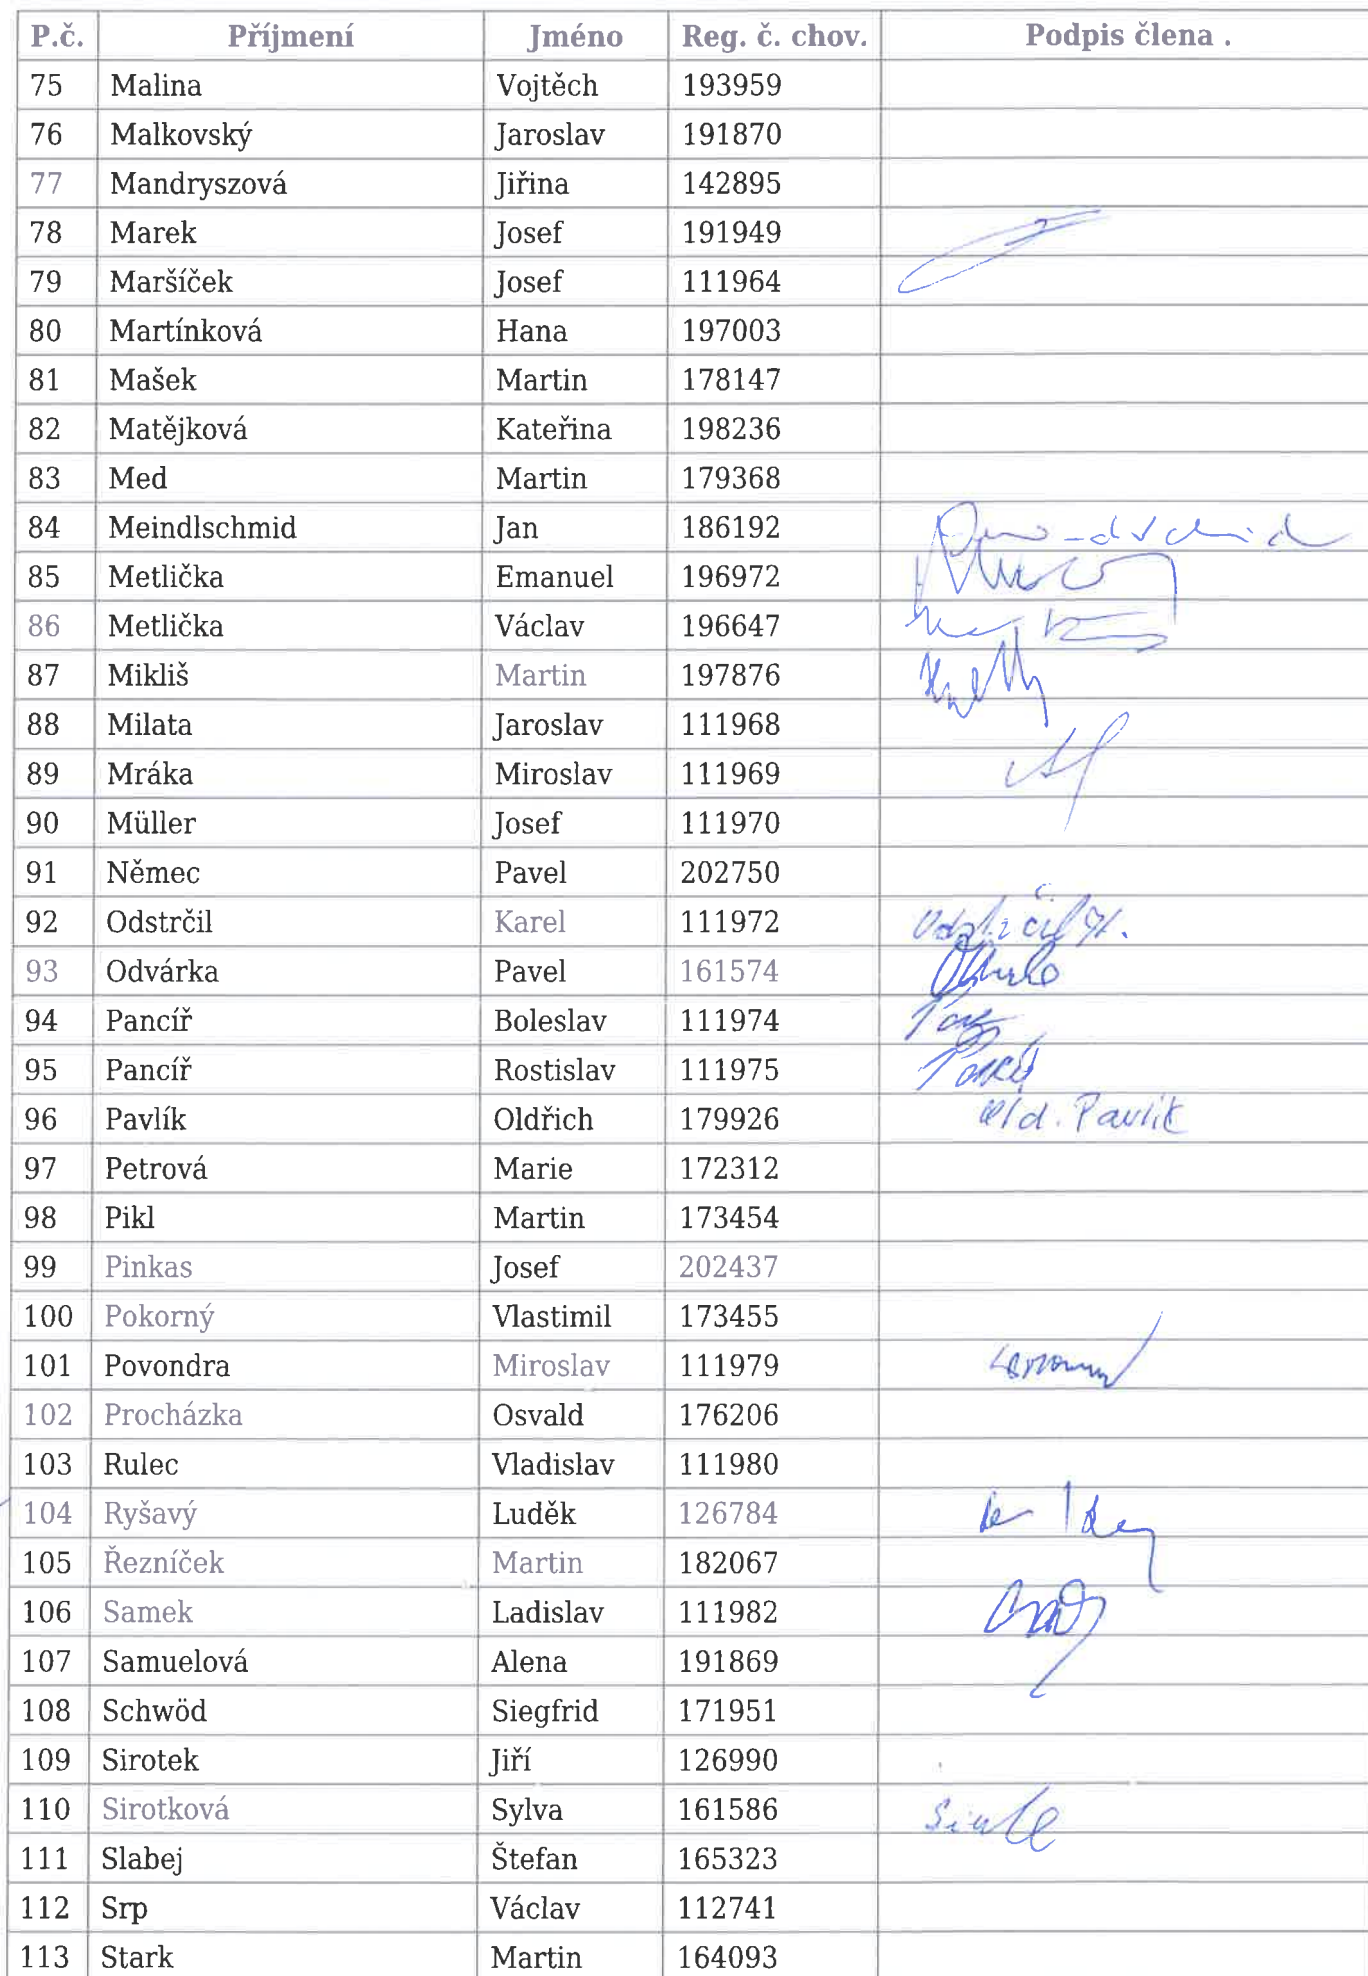 P.č. Příjmení Jméno Reg. č. chov. Podpis člena .
75 Malina Vojtěch 193959
76 Malkovský Jaroslav 191870
77 Mandryszová Jiřina 142895
78 Marek Josef 191949
79 Maršíček Josef 111964
80 Martínková Hana 197003
81 Mašek Martin 178147
82 Matějková Kateřina 198236
83 Med Martin 179368
84 Meindlschmid Jan 186192
85 Metlička Emanuel 196972
86 Metlička Václav 196647
87 Mikliš Martin 197876
88 Milata Jaroslav 111968
89 Mráka Miroslav 111969
90 Müller Josef 111970
91 Němec Pavel 202750
92 Odstrčil Karel 111972
93 Odvárka Pavel 161574
94 Pancíř Boleslav 111974
95 Pancíř Rostislav 111975
96 Pavlík Oldřich 179926 Old. Pavlík
97 Petrová Marie 172312
98 Pikl Martin 173454
99 Pinkas Josef 202437
100 Pokorný Vlastimil 173455
101 Povondra Miroslav 111979
102 Procházka Osvald 176206
103 Rulec Vladislav 111980
104 Ryšavý Luděk 126784
105 Řezníček Martin 182067
106 Samek Ladislav 111982
107 Samuelová Alena 191869
108 Schwöd Siegfrid 171951
109 Sirotek Jiří 126990
110 Sirotková Sylva 161586
111 Slabej Štefan 165323
112 Srp Václav 112741
113 Stark Martin 164093